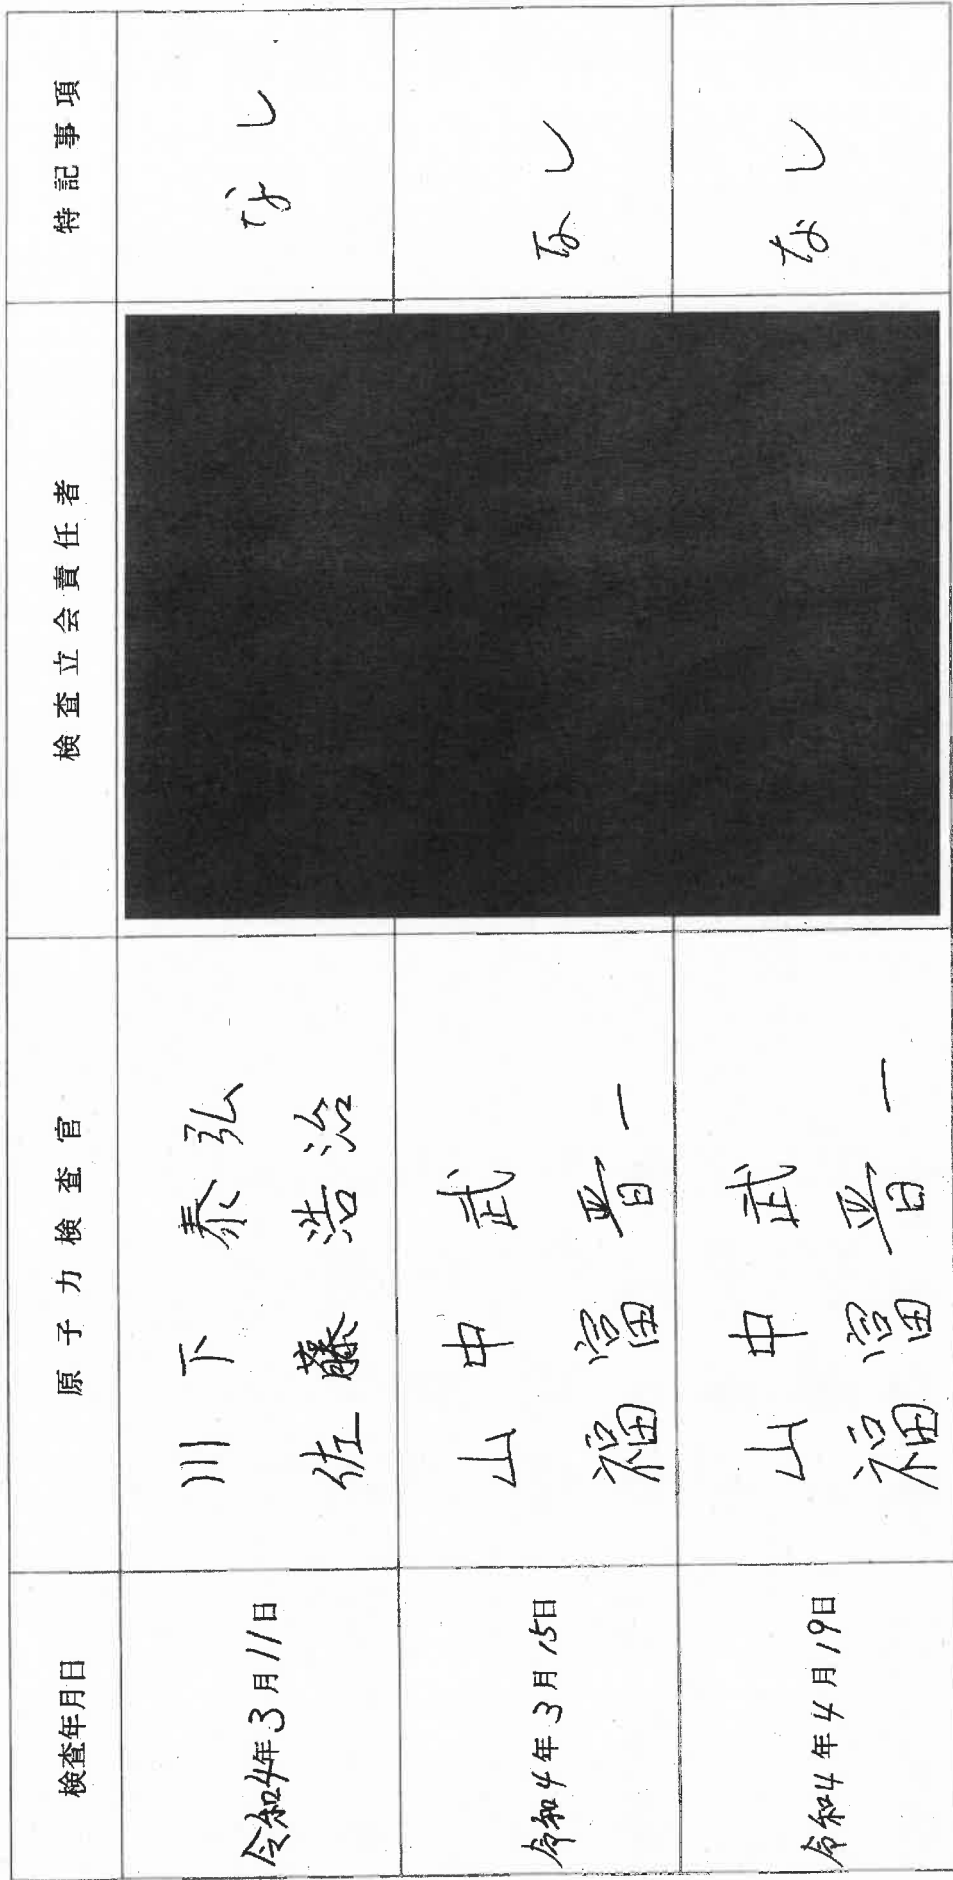 検査年月日
原子力検査官
検査立会責任者
特記事項
令和4年3月11日
川下 泰弘
佐藤 浩治
なし
令和4年3月15日
山中 武
福富 晋一
なし
令和4年4月19日
山中 武
福富 晋一
なし